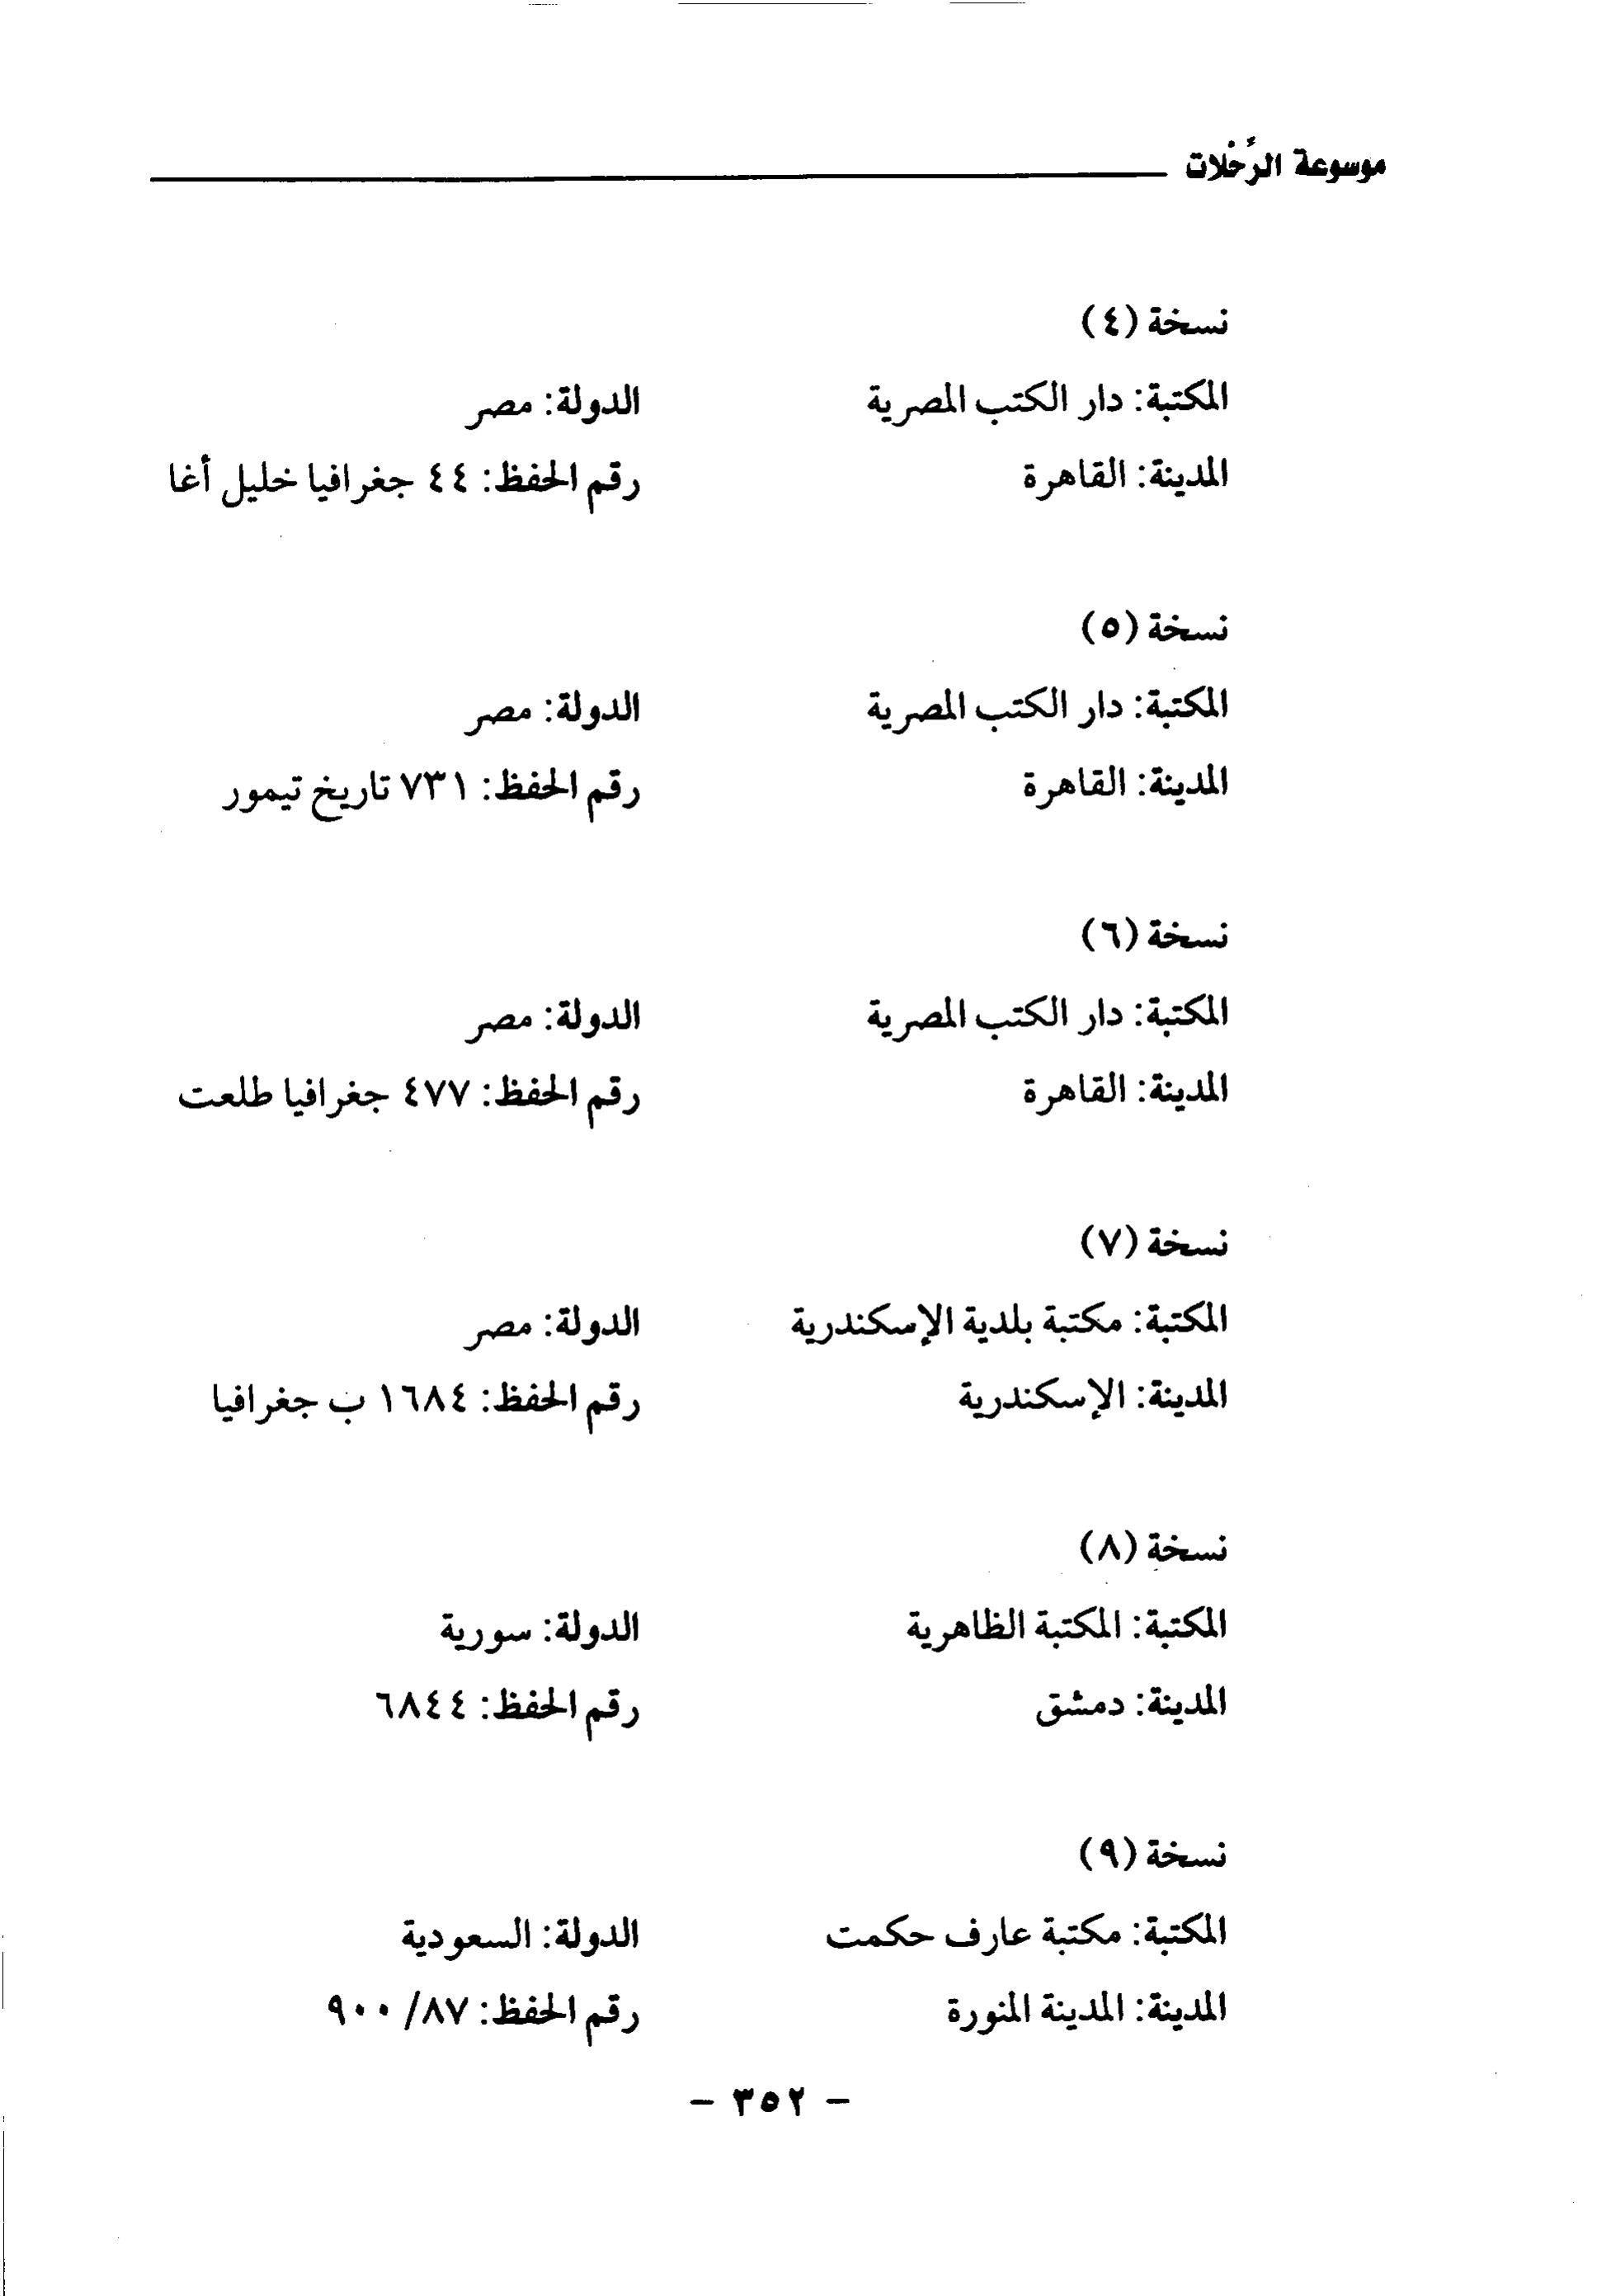 موسوعة الرِّحْلات
نسخة (٤)
المكتبة: دار الكتب المصرية الدولة: مصر
المدينة: القاهرة رقم الحفظ: ٤٤ جغرافيا خليل أغا
نسخة (٥)
المكتبة: دار الكتب المصرية الدولة: مصر
المدينة: القاهرة رقم الحفظ: ٧٣١ تاريخ تيمور
نسخة (٦)
المكتبة: دار الكتب المصرية الدولة: مصر
المدينة: القاهرة رقم الحفظ: ٤٧٧ جغرافيا طلعت
نسخة (٧)
المكتبة: مكتبة بلدية الإسكندرية الدولة: مصر
المدينة: الإسكندرية رقم الحفظ: ١٦٨٤ ب جغرافيا
نسخة (٨)
المكتبة: المكتبة الظاهرية الدولة: سورية
المدينة: دمشق رقم الحفظ: ٦٨٤٤
نسخة (٩)
المكتبة: مكتبة عارف حكمت الدولة: السعودية
المدينة: المدينة المنورة رقم الحفظ: ٨٧/ ٩٠٠
- ٣٥٢ -